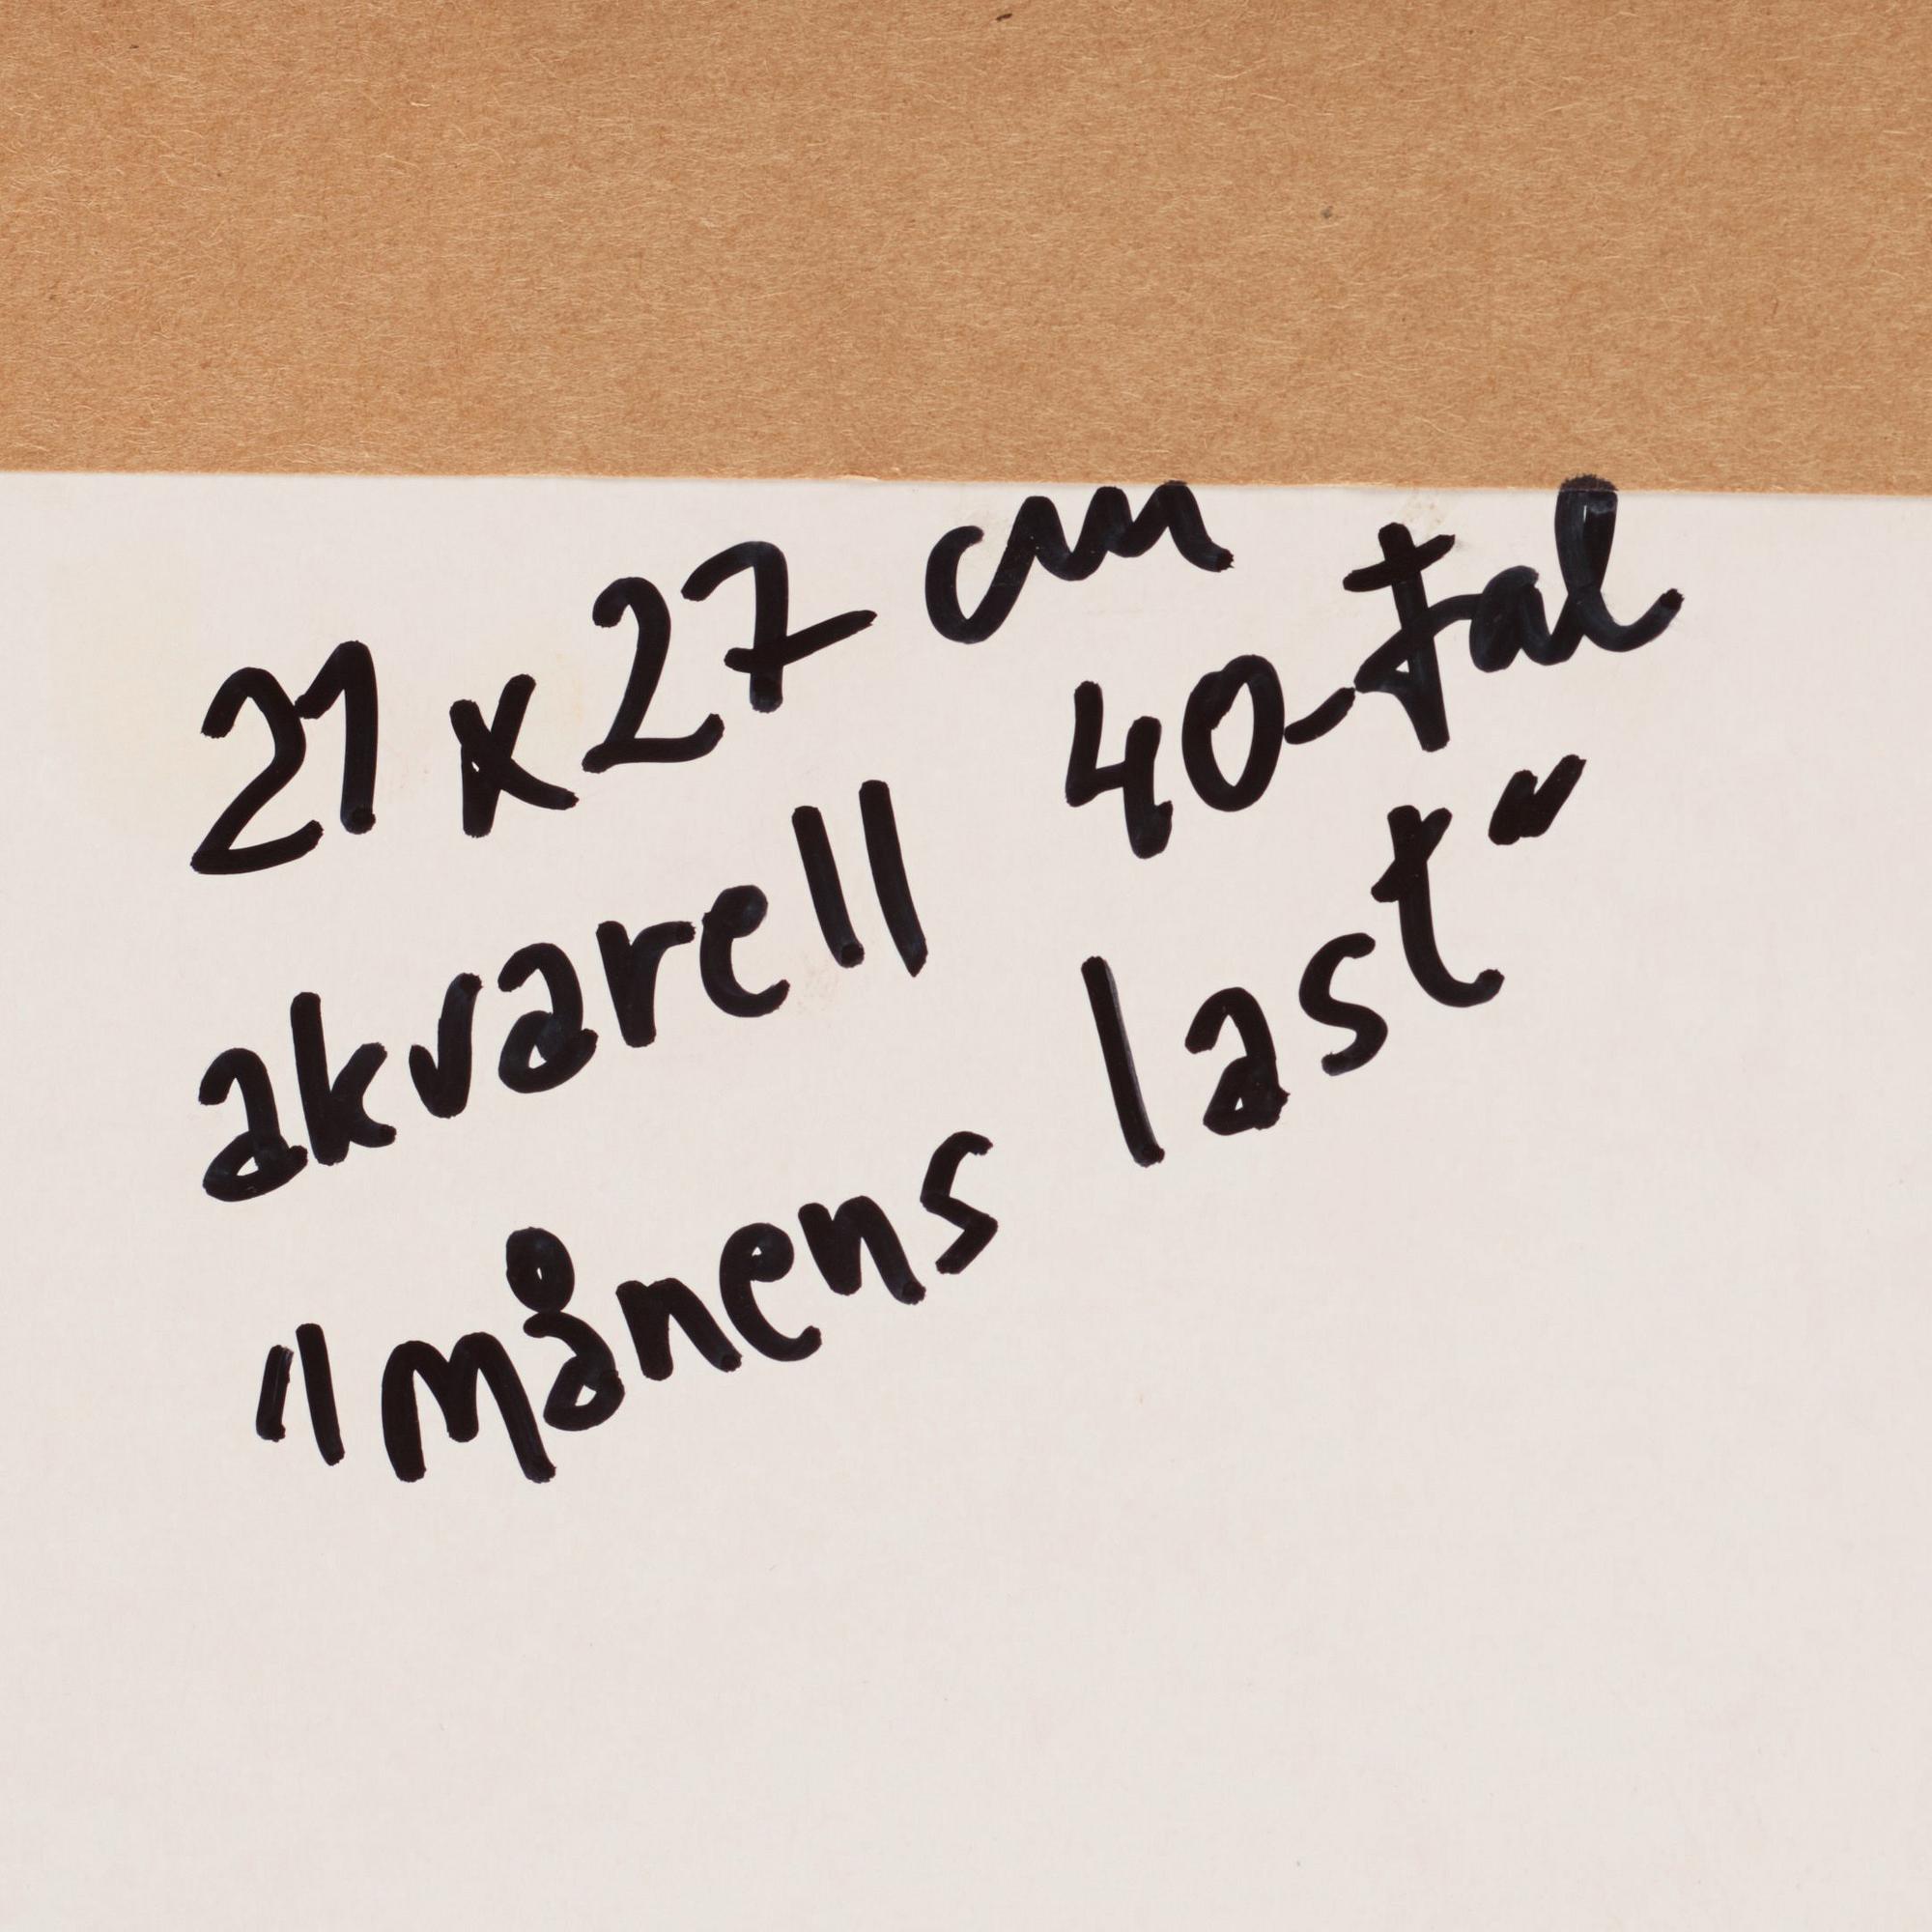 21 x 27 cm
akvarell 40-tal
"månens last"